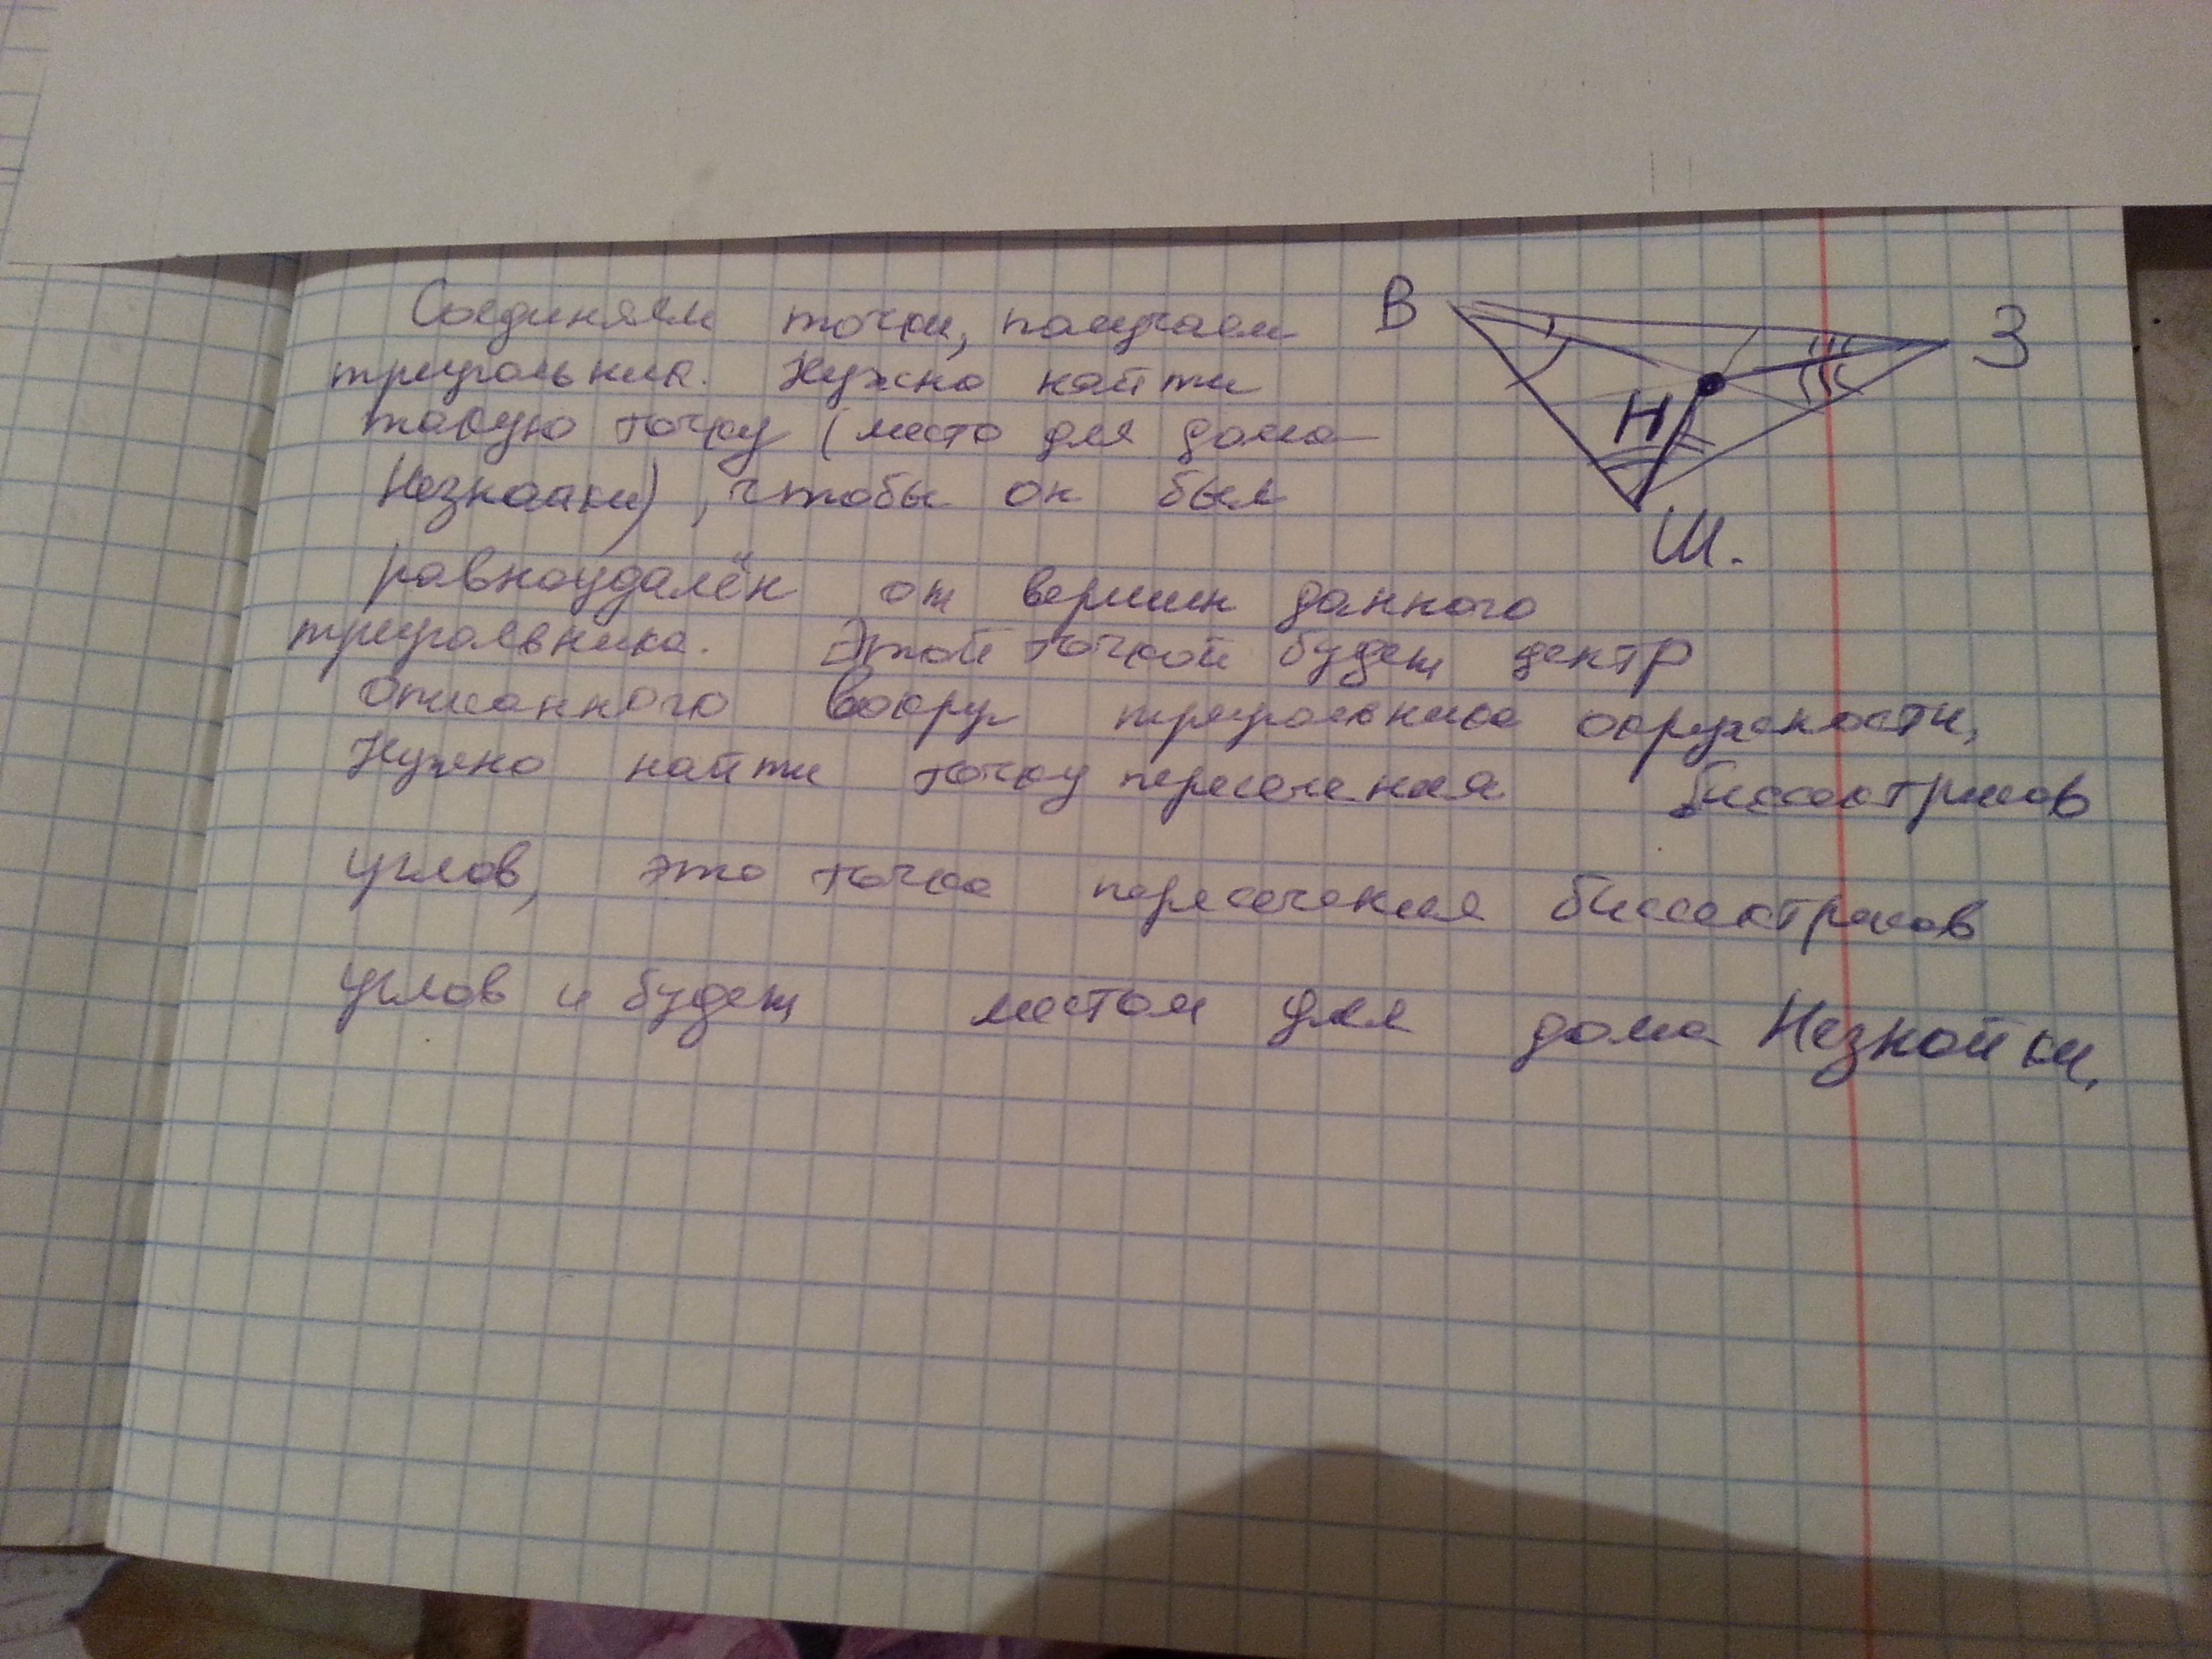 Соединяем точки, получаем
треугольник. Нужно найти
такую точку (место для дома
Незнайки), чтобы он был
равноудалён от вершин данного
треугольника. Этой точкой будет центр
описанного вокруг треугольника окружности,
Нужно найти точку пересечения биссектрисов
углов, это точка пересечения биссектрисов
углов и будет местом для дома Незнайки.
В
З
Н
Ш.